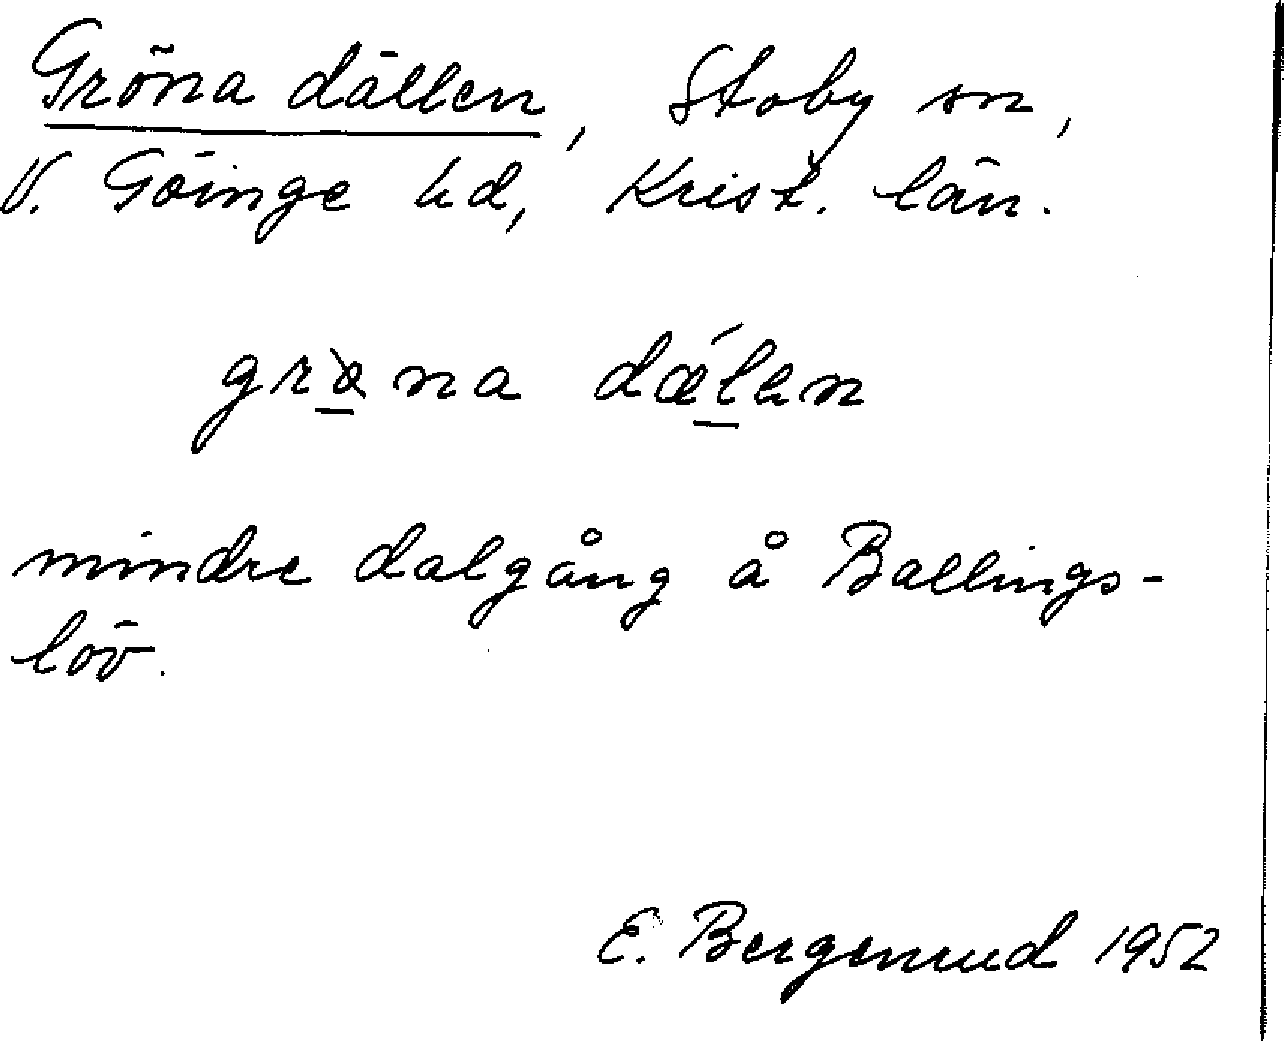 Gröna dällen, Stoby sn,
V. Göinge hd, Krist. län.
grøna dǽlen
mindre dalgång å Ballings-
löv.
E. Bergenrud 1952